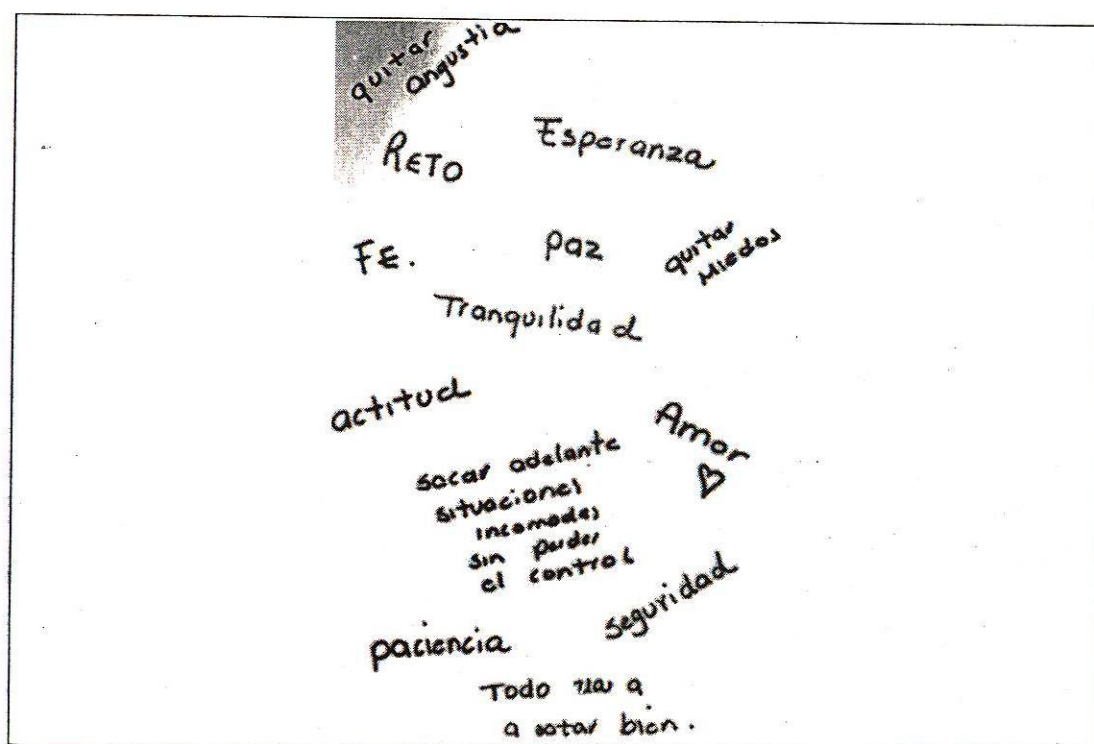 quitar
angustia
RETO
Esperanza
FE.
paz
quitar
Miedos
Tranquilidad
actitud
Amor
sacar adelante
situaciones
incomodas
sin perder
el control
seguridad
paciencia
Todo va a
a estar bien.